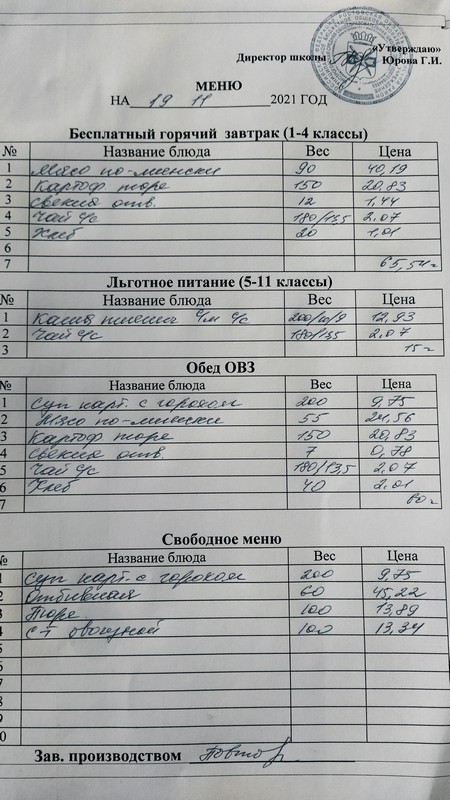 «Утверждаю»
Директор школы Юрова Г.И.
МЕНЮ
НА 19 11 2021 ГОД
Бесплатный горячий завтрак (1-4 классы)
№ Название блюда Вес Цена
1 Мясо по-мински 90 40,19
2 Картоф пюре 150 20,83
3 Свекла отв. 12 1,44
4 Чай с/с 180/13,5 2.07
5 Хлеб 20 1,01
6
7 65,54
Льготное питание (5-11 классы)
№ Название блюда Вес Цена
1 Каша пшенич с/м с/с 200/10/9 12,93
2 Чай с/с 180/13,5 2,07
3 15
Обед ОВЗ
№ Название блюда Вес Цена
1 Суп карт. с горохом 200 9,75
2 Мясо по-мински 55 24,56
3 Картоф пюре 150 20,83
4 Свекла отв. 7 0,78
5 Чай с/с 180/13,5 2,07
6 Хлеб 40 2.01
7 60
Свободное меню
№ Название блюда Вес Цена
1 Суп карт. с горохом 200 9,75
2 Отбивная 60 45,22
3 Пюре 100 13,89
4 с-т овощной 100 13,34
5
6
7
8
9
0
Зав. производством